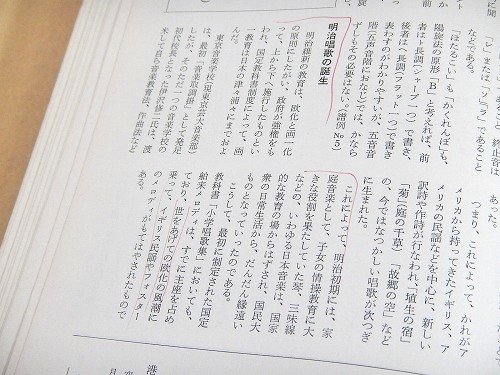 「ト」とか「ソ」「ラ」であること
などである。
「ほたるこい」も「かくれんぼ」も、
陽旋法の原形「B」と考えれば、前
者はト長調(シャープ一つ)で書き、
後者はヘ長調(フラット一つ)で書き
表わすのがわかりやすいが、五音音
階(五声音階)におなじ)では、かなら
ずしもその必要はない。(譜例№5)
明治唱歌の誕生
明治維新の教育は、欧化と画一化
の原則にしたがい、政府が強権をも
って、上から下へ施行したものとい
われ、国定教科書制度によって、画
一教育は日本の津々浦々にまでおよ
んだ。
東京音楽学校(現東京芸大音楽部)
は、最初「音楽取調掛」として発足
したが、そのただ一つの音楽学校の
初代校長となった伊沢修二氏は、渡
米して自ら音楽教育法、作曲法など
あった。
つまり、これによって、かれがア
メリカから持ってきたイギリス、ア
メリカの民謡などを中心に、新しい
訳詩や作詩が行なわれ、「埴生の宿」
「菊」(庭の千草)「故郷の空」など
の、今ではなつかしい唱歌が次つぎ
に生まれた。
これによって、明治初期には、家
庭音楽として、子女の情操教育に大
きな役割を果たしていた琴、三味線
などの、いわゆる日本音楽は、国家
的な教育の場からはずされ、国民大
衆の日常生活から、だんだん縁遠い
ものとなっていったのである。
こうして、最初に制定された国定
教科書「小学唱歌集」においても、
舶来メロディは、すでに主座を占め
ており、世をあげての欧化の風潮に
乗って、イギリス民謡やフォスター
のメロディがもてはやされたもので
ある。